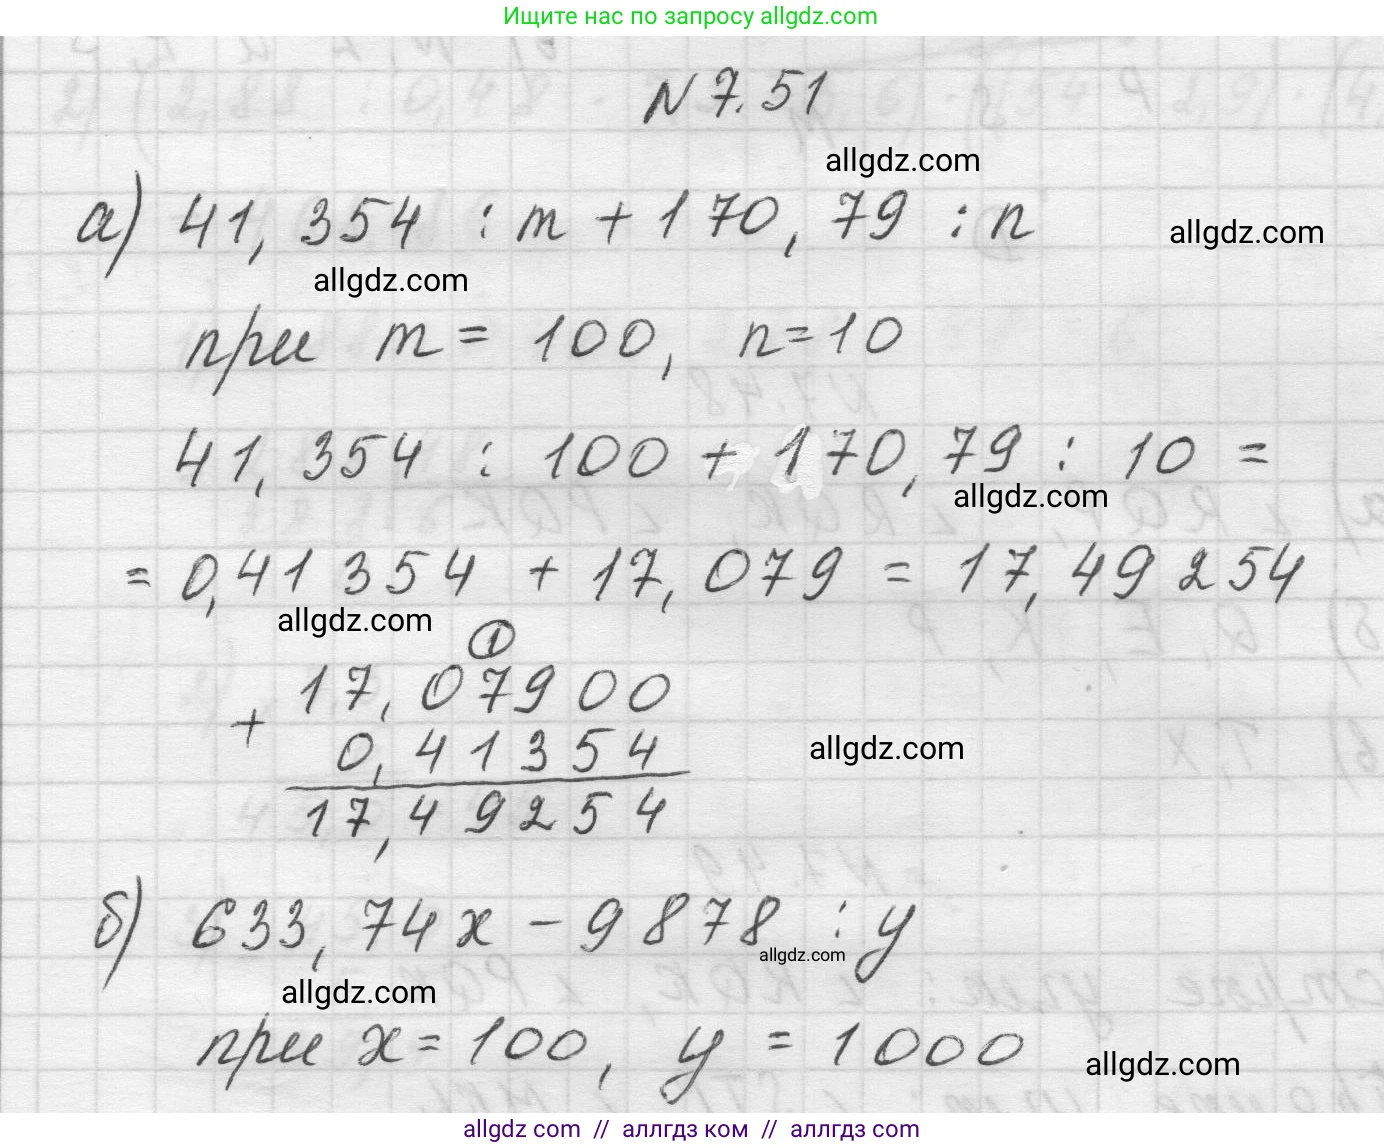 Ищите нас по запросу allgdz.com
N 7.51
allgdz.com
а) 41,354 : m + 170,79 : n
allgdz.com
allgdz.com
при m = 100, n = 10
41,354 : 100 + 170,79 : 10 =
allgdz.com
= 0,41354 + 17,079 = 17,49254
allgdz.com
1
17,07900
+
0,41354
allgdz.com
17,49254
б) 633,74x - 9878 : y
allgdz.com
allgdz.com
при x = 100, y = 1000
allgdz.com
allgdz.com // аллгдз ком // аллгдз.com